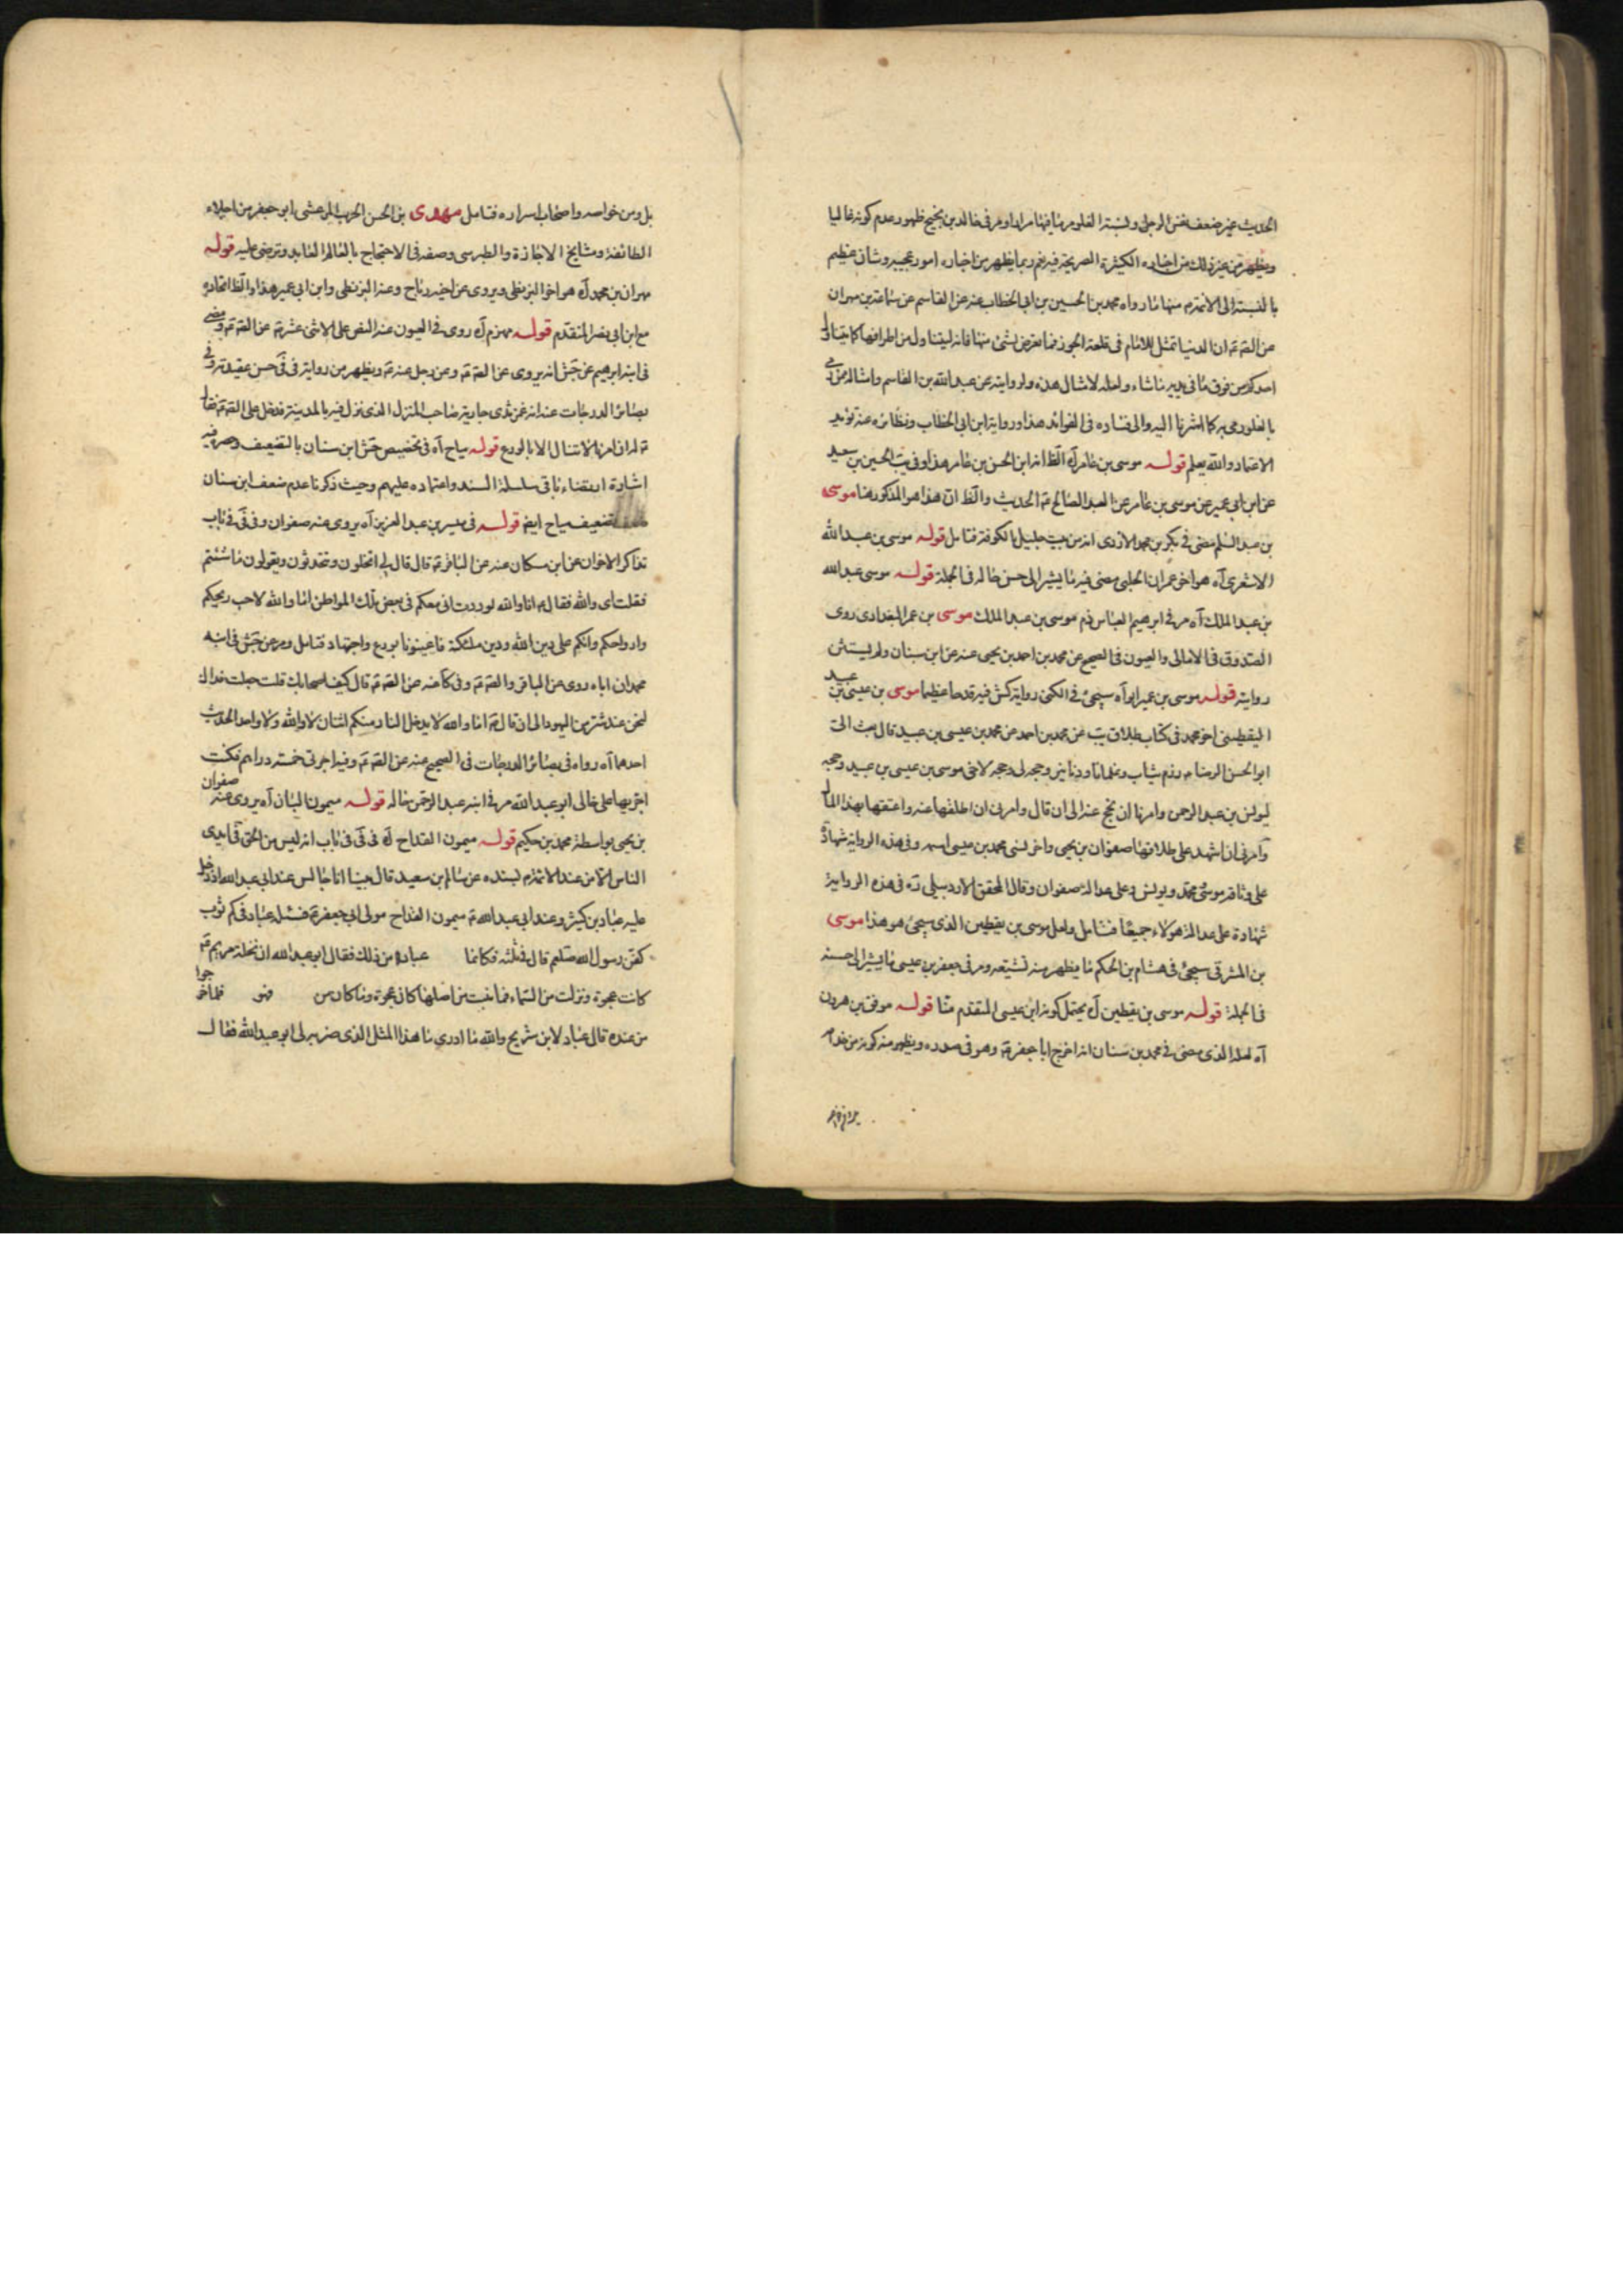 الحديث غير ضعف نفس الرجل ولنسبته الغلو مر ما فيها مرارا ومر في خالد بن نجيح ظهور عدم كونه غاليا
ويظهر من غير ذلك من اخباره الكثيرة الصريحة فيه نعم ربما يظهر من اخباره امور عجيبه وشان عظيم
بالنسبة الى الائمة م منها ما رواه محمد بن الحسين بن ابي الخطاب عنه عن القاسم عن سماعة بن مهران
عن الصم ع ان الدنيا تمثل للامام في فلقة الجوز فما تعرض بشئ منها فانه ليتناول من اطرافها كما يتناول
احدكم من فوق مائدته ما شاء ولعله لامثال هذه ولروايته عن عبد الله بن القاسم وامثاله ممن رمي
بالغلو رمي به كما اشرنا اليه والى فساده في الفوائد هذا ورواية ابن ابي الخطاب ونظائره عنه تؤيد
الاعتماد والله يعلم قوله موسى بن عامر آه الظ انه ابن الحسن بن عامر هذا وفي يب الحسين بن سعيد
عن ابن ابي عمير عن موسى بن عامر عن العبد الصالح ع الحديث والظ ان هذا هو المذكور هنا موسى
بن عبد السلم مضى في بكر بن محمد الازدي انه من بيت جليل بالكوفة فتامل قوله موسى بن عبد الله
الاشعري آه هو اخو عمران الحلبي مضى فيه ما يشير الى حسن حاله في الجملة قوله موسى عبد الله
بن عبد الملك آه مر في ابرهيم العباس ذم موسى بن عبد الملك موسى بن عمر البغدادي روى
الصدوق في الامالي والعيون في الصحيح عن محمد بن احمد بن يحيى عنه عن ابن سنان ولم يستثن
روايته قوله موسى بن عمير ابو آه سيجئ في الكنى رواية كش فيه قدحا عظيما موسى بن عيسى بن عبيد
اليقطيني اخو محمد في كتاب طلاق يب عن محمد بن احمد عن محمد بن عيسى بن عبيد قال بعث الى
ابو الحسن الرضا ع رزم ثياب وغلمانا ودنانير وحجه لي وحجه لاخي موسى بن عيسى بن عبيد وحجه
ليونس بن عبد الرحمن وامرنا ان نحج عنه الى ان قال وامرني ان اطلقها عنه وامتعها بهذا المال
وامرني ان اشهد على طلاقها صفوان بن يحيى واخر نسي محمد بن عيسى اسمه وفي هذه الرواية شهادة
على وثاقة موسى محمد ويونس وعلى عدالة صفوان وقال المحقق الاردبيلي ره في هذه الرواية
شهادة على عدالة هؤلاء جميعا فتامل ولعل موسى بن يقطين الذي سيجئ هو هذا موسى
بن المشرقي سيجئ في هشام بن الحكم ما يظهر منه تشيعه ومر في جعفر بن عيسى ما يشير الى حسنه
في الجملة قوله موسى بن يقطين آه يحتمل كونه ابن عيسى المتقدم منا قوله موفق بن هرون
آه لعله الذي مضى في محمد بن سنان انه اخرج ابا جعفر ع وهو في صدره ويظهر منه كونه من خدام
بل ومن خواصه واصحاب اسراره فتامل مهدي بن الحسن الحرب المرعشي ابو جعفر من اجلاء
الطائفة ومشايخ الاجازة والطبرسي وصفه في الاحتجاج بالعالم العابد وترضى عليه قوله
مهران بن محمد آه هو اخو البزنطي ويروي عن اخيه رباح وعنه البزنطي وابن ابي عمير هذا والظ اتحاده
مع ابن ابي نصر المتقدم قوله مهزم آه روى في العيون عنه النص على الاثني عشر ع عن الصم ع ومضى
في ابنه ابرهيم عن جش انه يروي عن الصم ع وعن رجل عنه ع ويظهر من رواية في في حسن عقيدته وفي
بصائر الدرجات عنه انه غمز ثدي جارية صاحب المنزل الذي نزل فيه بالمدينة فدخل على الصم ع فقال
ع له ان امرنا لا ينال الا بالورع قوله مياح آه في تخصيص جش ابن سنان بالتضعيف وحصره فيه
اشارة ارتضاء باقي سلسلة السند واعتماده عليهم وحيث ذكرنا عدم ضعف ابن سنان
تضعيف مياح ايضا قوله في ميسر بن عبد العزيز آه يروي عنه صفوان وفي في في باب
تذاكر الاخوان عن ابن مسكان عنه عن الباقر ع قال قال لي اتخلون وتتحدثون وتقولون ما شئتم
فقلت اي والله فقال ع اما والله لوددت اني معكم في بعض تلك المواطن اما والله لاحب ريحكم
وارواحكم وانكم على دين الله ودين ملئكته فاعينونا بورع واجتهاد فتامل ومر عن جش في ابنه
محمد ان اباه روى عن الباقر والصم ع وفي كا عنه عن الصم ع قال كيف اصحابك قلت جعلت فداك
لنحن عندهم شر من اليهود الى ان قال ع اما والله لا يدخل النار منكم اثنان لا والله ولا واحد الحديث
احدهما آه رواه في بصائر الدرجات في الصحيح عنه عن الصم ع وفيه اجرتي خمسة دراهم فكنت
اجريها على خالي ابو عبد الله مر في ابنه عبد الرحمن حاله قوله ميمون البان آه يروي عنه صفوان
بن يحيى بواسطة محمد بن حكيم قوله ميمون القداح آه في في في باب انه ليس من الحق في ايدي
الناس الا من عند الائمة م بسنده عن سالم بن سعيد قال بينا انا جالس عند ابي عبد الله اذ دخل
عليه عباد بن كثير وعند ابي عبد الله ع ميمون القداح مولى ابي جعفر ع فسئله عباد في كم ثوب
كفن رسول الله صلعم قال في ثلثه فكانما عباد من ذلك فقال ابو عبد الله ان نخلة مريم ع
كانت عجوة ونزلت من السماء فما نبت من اصلها كان عجوة وما كان من فهو فلما خرجوا
من عنده قال عباد لابن شريح والله ما ادري ما هذا المثل الذي ضربه لي ابو عبد الله فقال